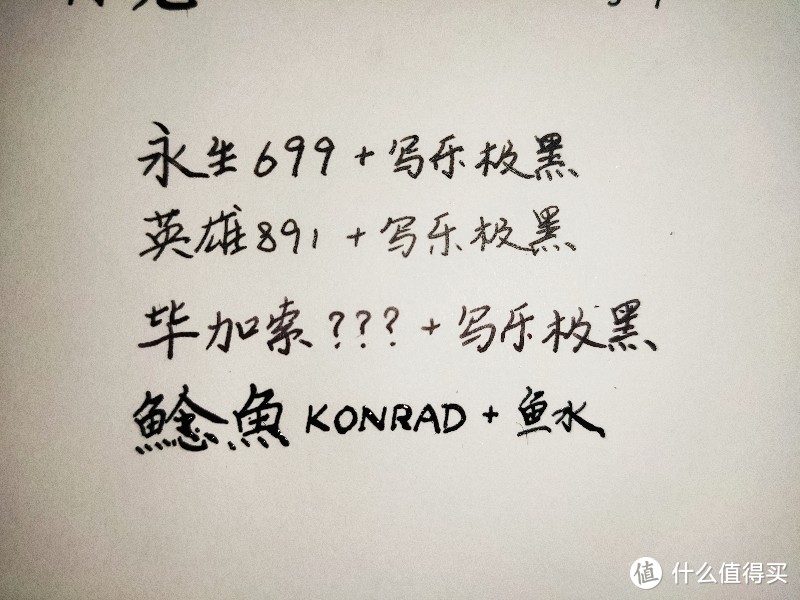 永生699+写乐极黑
英雄891+写乐极黑
毕加索???+写乐极黑
鯰魚 KONRAD + 鱼水
值 什么值得买